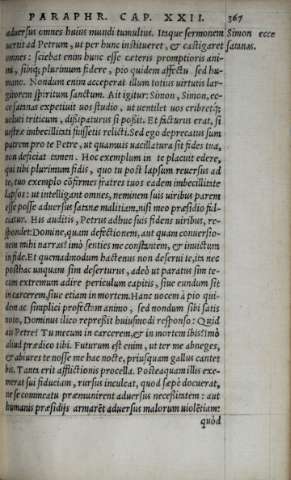 PARAPHR. CAP. XXII. 367
aduersus omnes huius mundi tumultus. Itaque sermonem Simon ecce
uertit ad Petrum, ut per hunc institueret, & castigaret satanas.
omnes: sciebat enim hunc esse cæteris promptioris ani-
mi, sibique plurimum fidere, pio quidem affectu sed hu-
mano. Nondum enim acceperat illum totius uirtutis lar-
gitorem spiritum sanctum. Ait igitur: Simon, Simon, ec-
ce satanas expetiuit uos studio, ut uentilet uos cribretque
uelut triticum, dissipaturus si possit. Et facturus erat, si
uestræ imbecillitati fuissetis relicti. Sed ego deprecatus sum
patrem pro te Petre, ut quamuis uacillatura sit fides tua,
non deficiat tamen. Hoc exemplum in te placuit edere,
qui tibi plurimum fidis, quo tu post lapsum reuersus ad
te, tuo exemplo cōfirmes fratres tuos eadem imbecillitate
lapsos: ut intelligant omnes, neminem suis uiribus parem
esse posse aduersus satanæ malitiam, nisi meo præsidio fulc-
iatur. His auditis, Petrus adhuc suis fidens uiribus, re-
spondet: Domine, quam defectionem, aut quam conuersio-
nem mihi narras? imò senties me constantem, & inuictum
in fide. Et quemadmodum hactenus non deserui te, ita nec
posthac unquam sim deserturus, adeò ut paratus sim te-
cum extremum adire periculum capitis, siue eundum sit
in carcerem, siue etiam in mortem. Hanc uocem à pio qui-
dem ac simplici profectam animo, sed nondum sibi satis
noto, Dominus ilico repressit huiusmodi responso: Quid
ais Petre? Tu mecum in carcerem, & in mortem ibis? Imò
aliud prædico tibi. Futurum est enim, ut ter me abneges,
& abiures te nosse me hac nocte, priusquam gallus cantet
bis. Tanta erit afflictionis procella. Posteaquam illis exe-
merat sui fiduciam, rursus inculcat, quod sæpe docuerat,
ne se commeatu præmunirent aduersus necessitatem: aut
humanis præsidijs armarēt aduersus malorum uiolētiam:
quòd